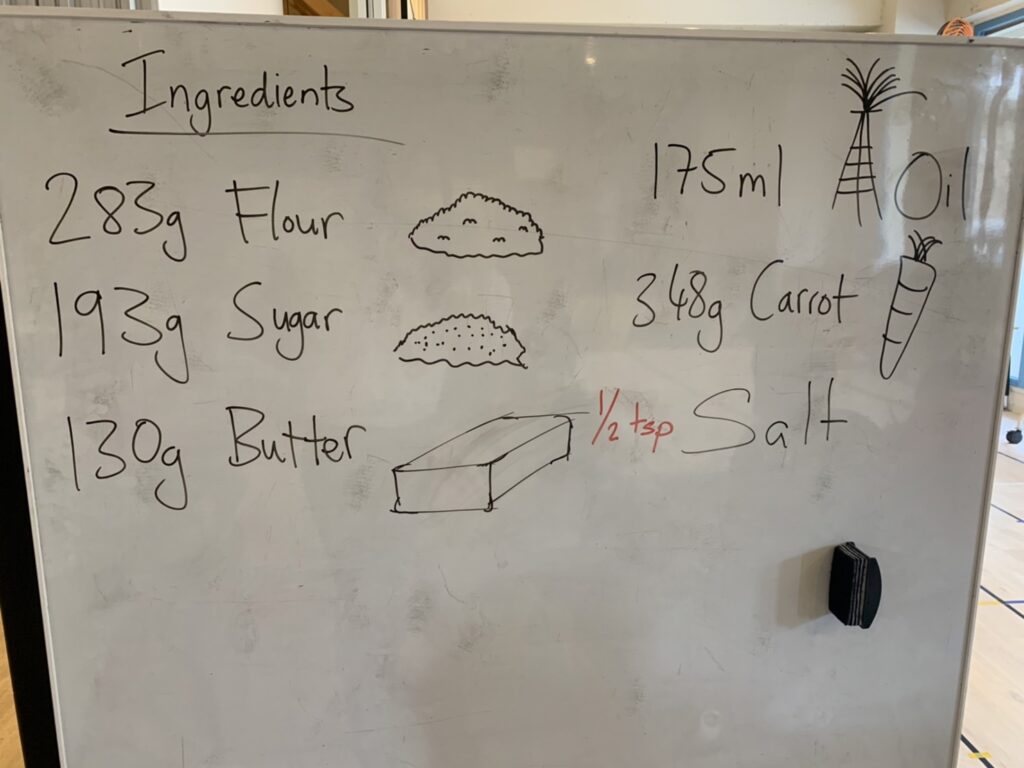 Ingredients
283g Flour
193g Sugar
130g Butter
175ml Oil
348g Carrot
1/2 tsp Salt